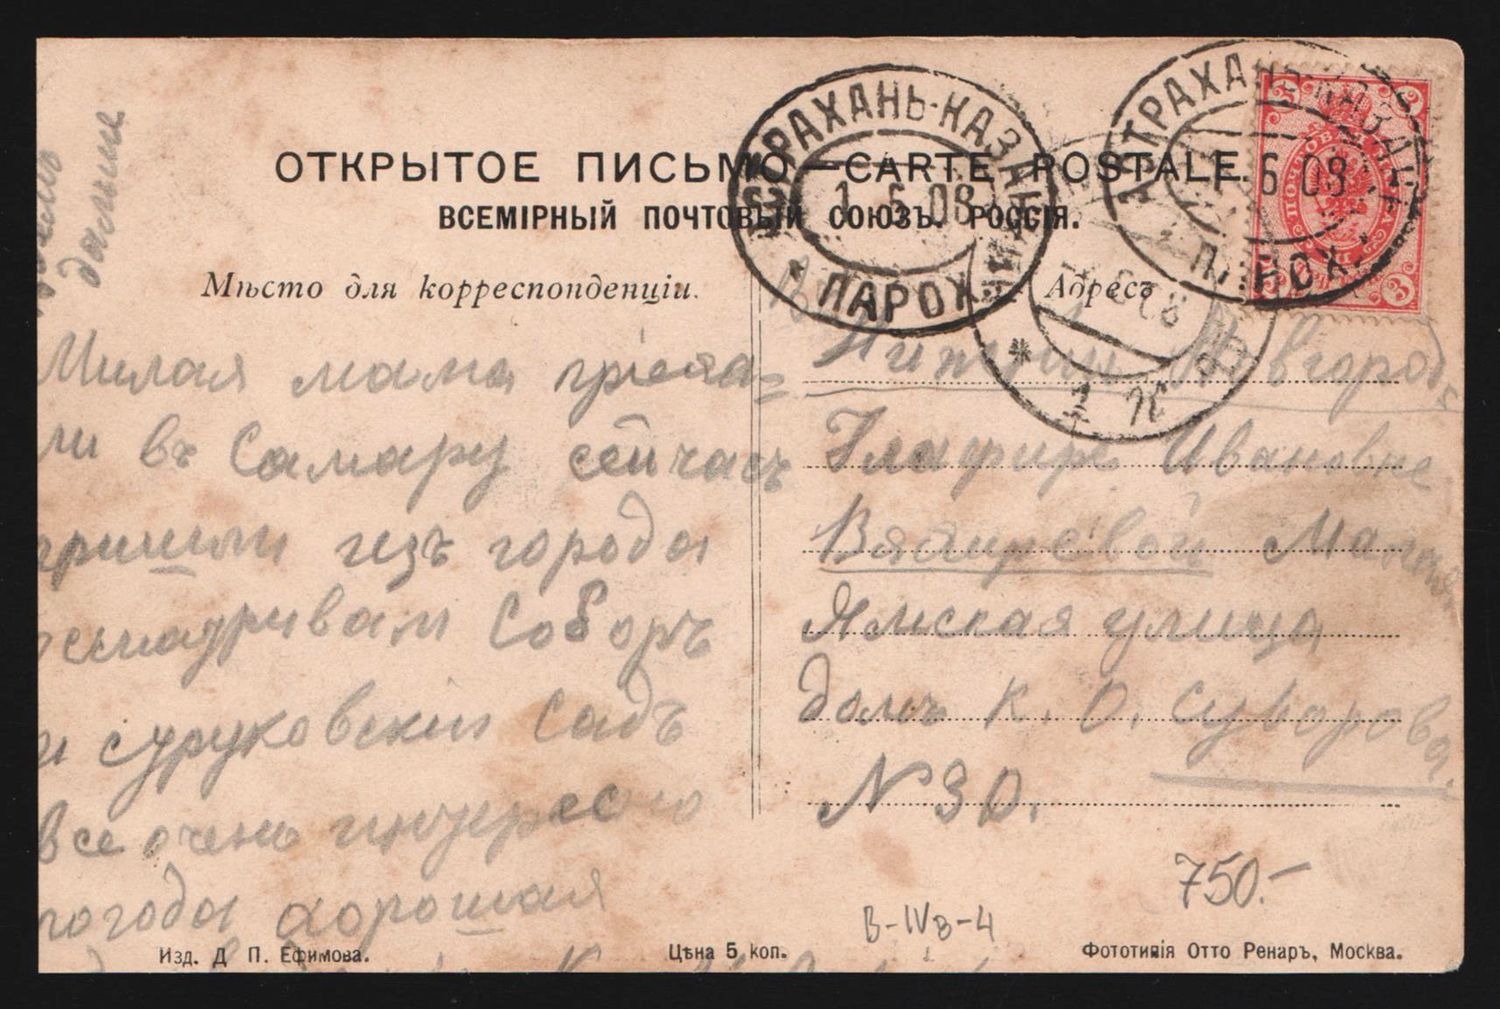 ОТКРЫТОЕ ПИСЬМО—CARTE POSTALE.
ВСЕМІРНЫЙ ПОЧТОВЫЙ СОЮЗЪ. РОССІЯ.
АСТРАХАНЬ-КАЗАНЬ
1 6 08
ПАРОХ.
АСТРАХАНЬ-КАЗАНЬ
6 08
ПАРОХ.
ПОЧТОВАЯ
3
3
3
Мѣсто для корреспонденціи.
Адресъ
Милая мама пріеха=
ли въ Самару сейчасъ
пришли изъ города
осматривали Соборъ
и струковскій Садъ
все очень интересно
погода хорошая
дальше
Нижній Новгородъ
Глафире Ивановне
Вязиревой Малая
Ямская улица
домъ К. О. Суворова.
№ 30.
750.-
В-IVв-4
Изд. Д. П. Ефимова.
Цѣна 5 коп.
Фототипія Отто Ренаръ, Москва.